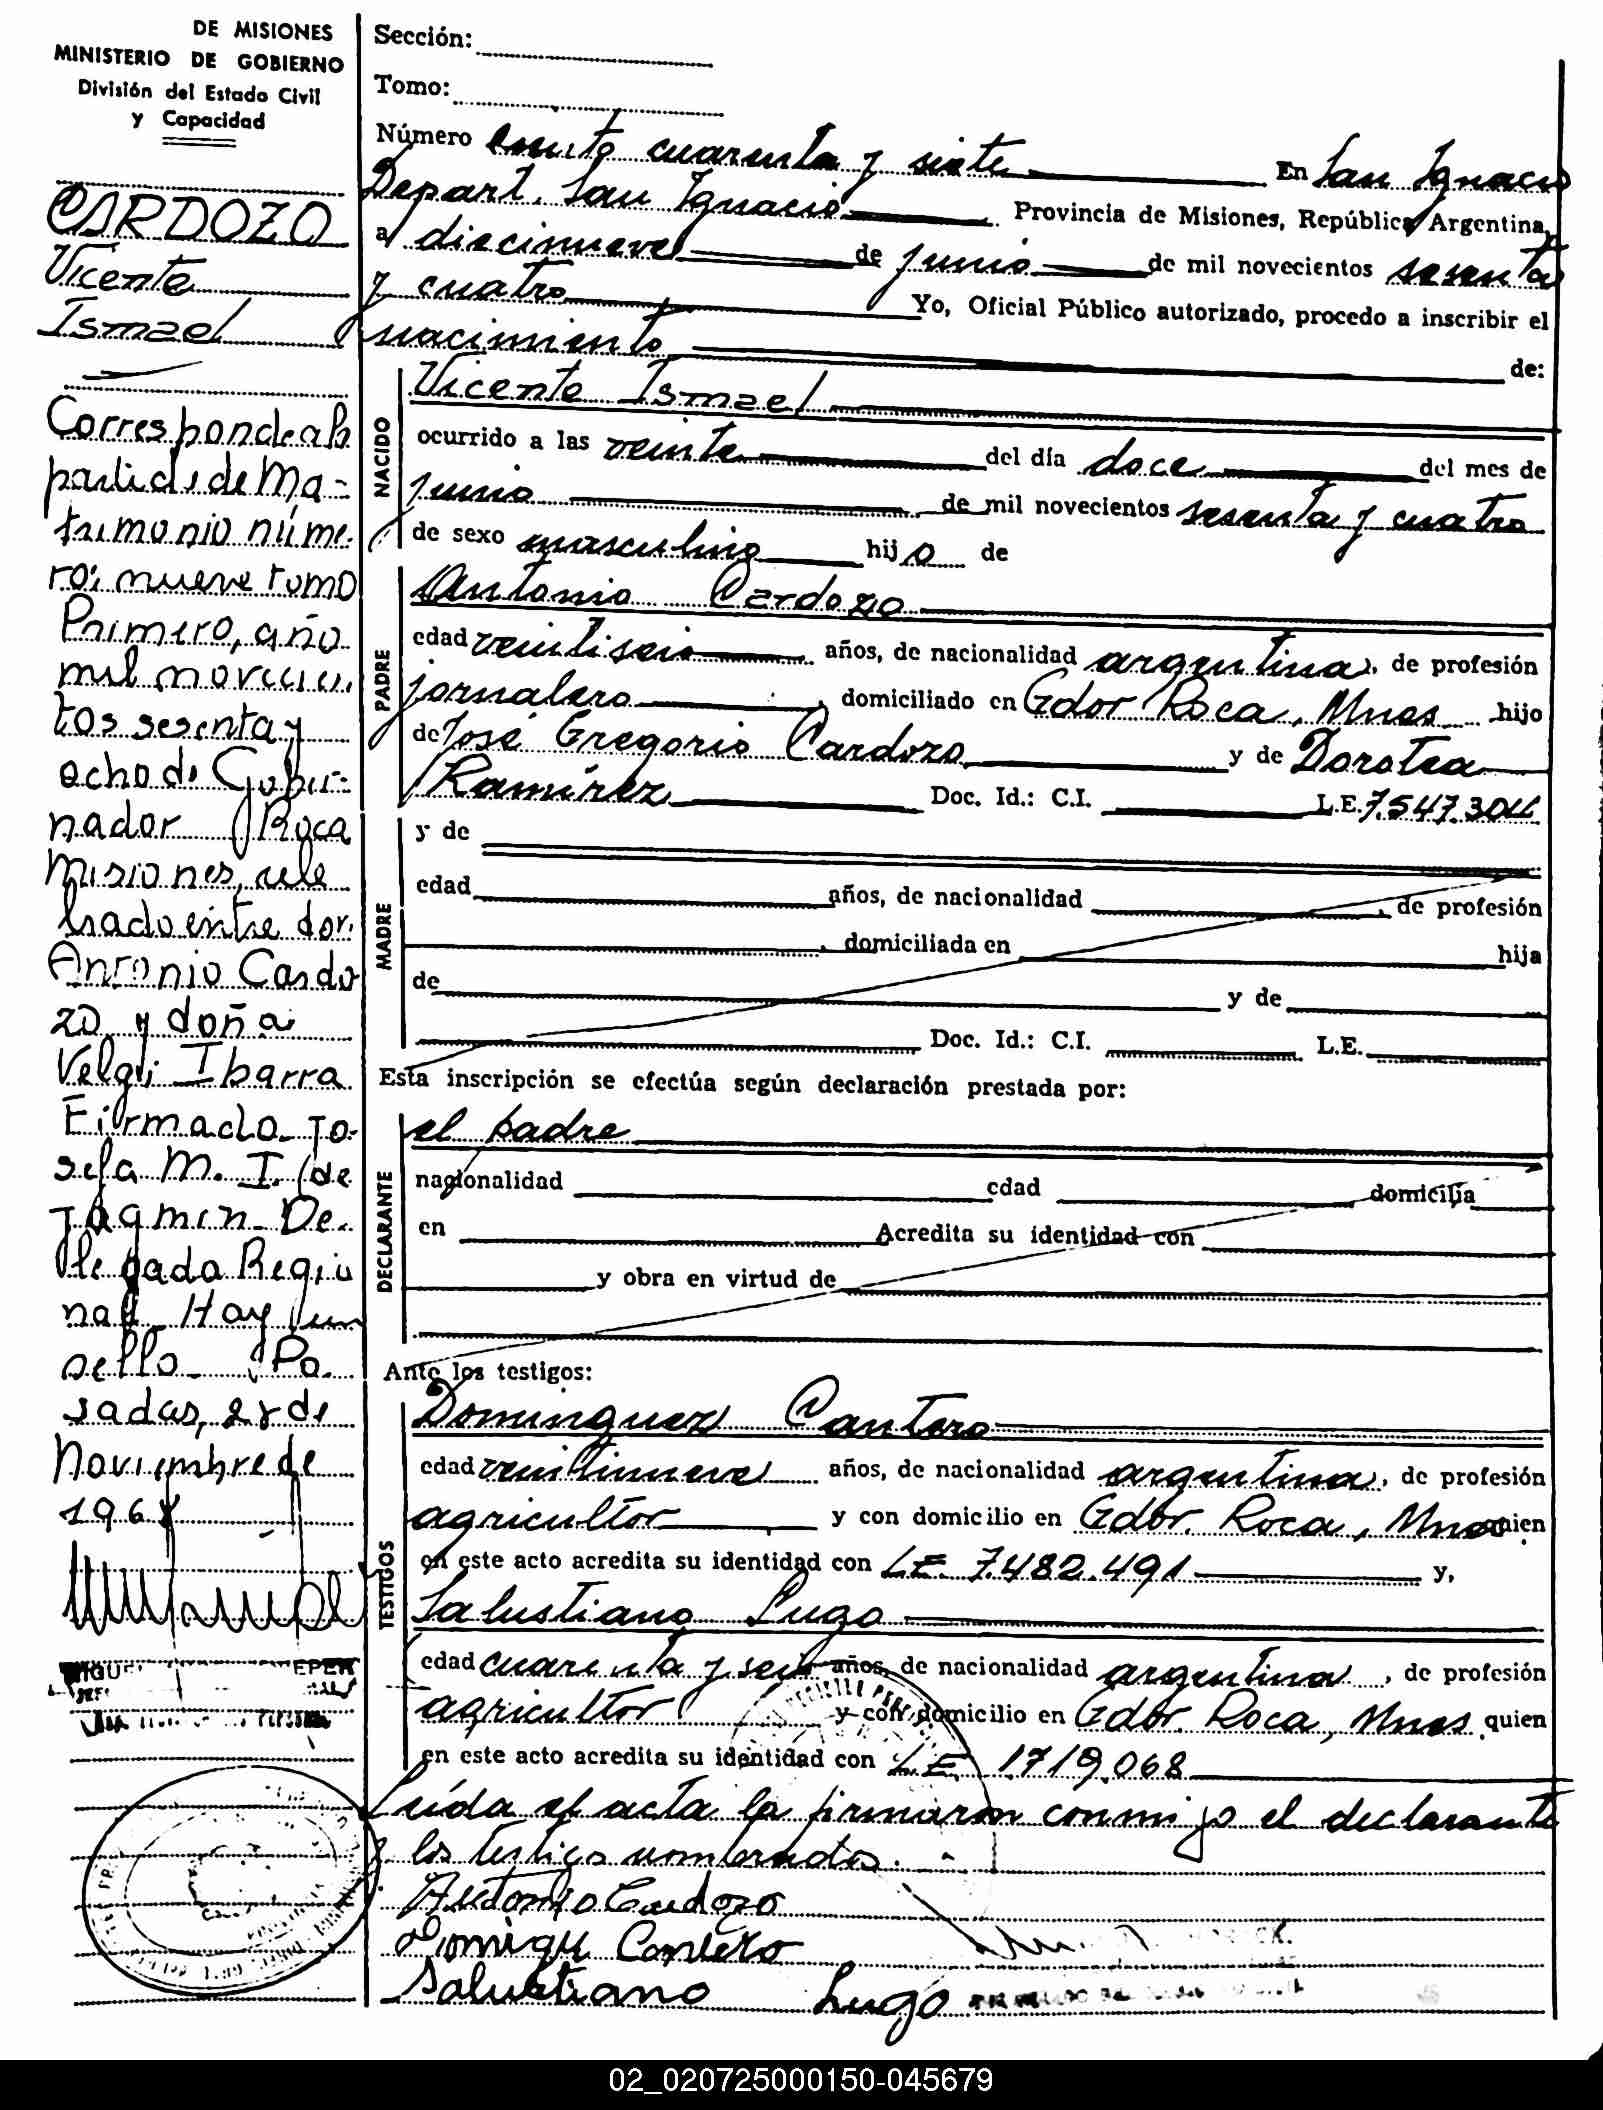 DE MISIONES
MINISTERIO DE GOBIERNO
División del Estado Civil
y Capacidad
CARDOZO
Vicente
Ismael
Corresponde a la
partida de Ma-
trimonio núme-
ro: nueve tomo
Primero, año
mil novecien
tos sesenta y
ocho de Gober-
nador Roca
Misiones, cele
brado entre don
Antonio Cardo
zo y doña
Ibarra
Firmado. Jo-
sefa M. I. de
De-
legada Regio
nal. Hay un
sello. Po-
sadas, 28 de
Noviembre de
1968
Sección:
Tomo:
Número ciento cuarenta y siete En San Ignacio
Depart. San Ignacio Provincia de Misiones, República Argentina,
a diecinueve de junio de mil novecientos sesenta
y cuatro Yo, Oficial Público autorizado, procedo a inscribir el
nacimiento de:
NACIDO
Vicente Ismael
ocurrido a las veinte del día doce del mes de
junio de mil novecientos sesenta y cuatro
de sexo masculino hijo de
PADRE
Antonio Cardozo
edad veintiseis años, de nacionalidad argentina, de profesión
jornalero, domiciliado en Gdor Roca, Mnes hijo
de José Gregorio Cardozo y de Dorotea
Ramírez Doc. Id.: C.I. L.E. 7.547.304
MADRE
y de
edad años, de nacionalidad , de profesión
, domiciliada en hija
de y de
Doc. Id.: C.I. L.E.
Esta inscripción se efectúa según declaración prestada por:
DECLARANTE
el padre
nacionalidad edad domicilia
en Acredita su identidad con
y obra en virtud de
Ante los testigos:
TESTIGOS
Dominguez Cantero
edad veintinueve años, de nacionalidad argentina, de profesión
agricultor y con domicilio en Gdor. Roca, Mnes quien
en este acto acredita su identidad con LE. 7.482.491 y,
Salustiano Lugo
edad cuarenta y seis años, de nacionalidad argentina, de profesión
agricultor y con domicilio en Gdor. Roca, Mnes quien
en este acto acredita su identidad con L.E. 1719.068
Leída el acta la firmaron conmigo el declarante
y los testigos nombrados.
Antonio Cardozo
Cantero
Salustiano Lugo
02_020725000150-045679